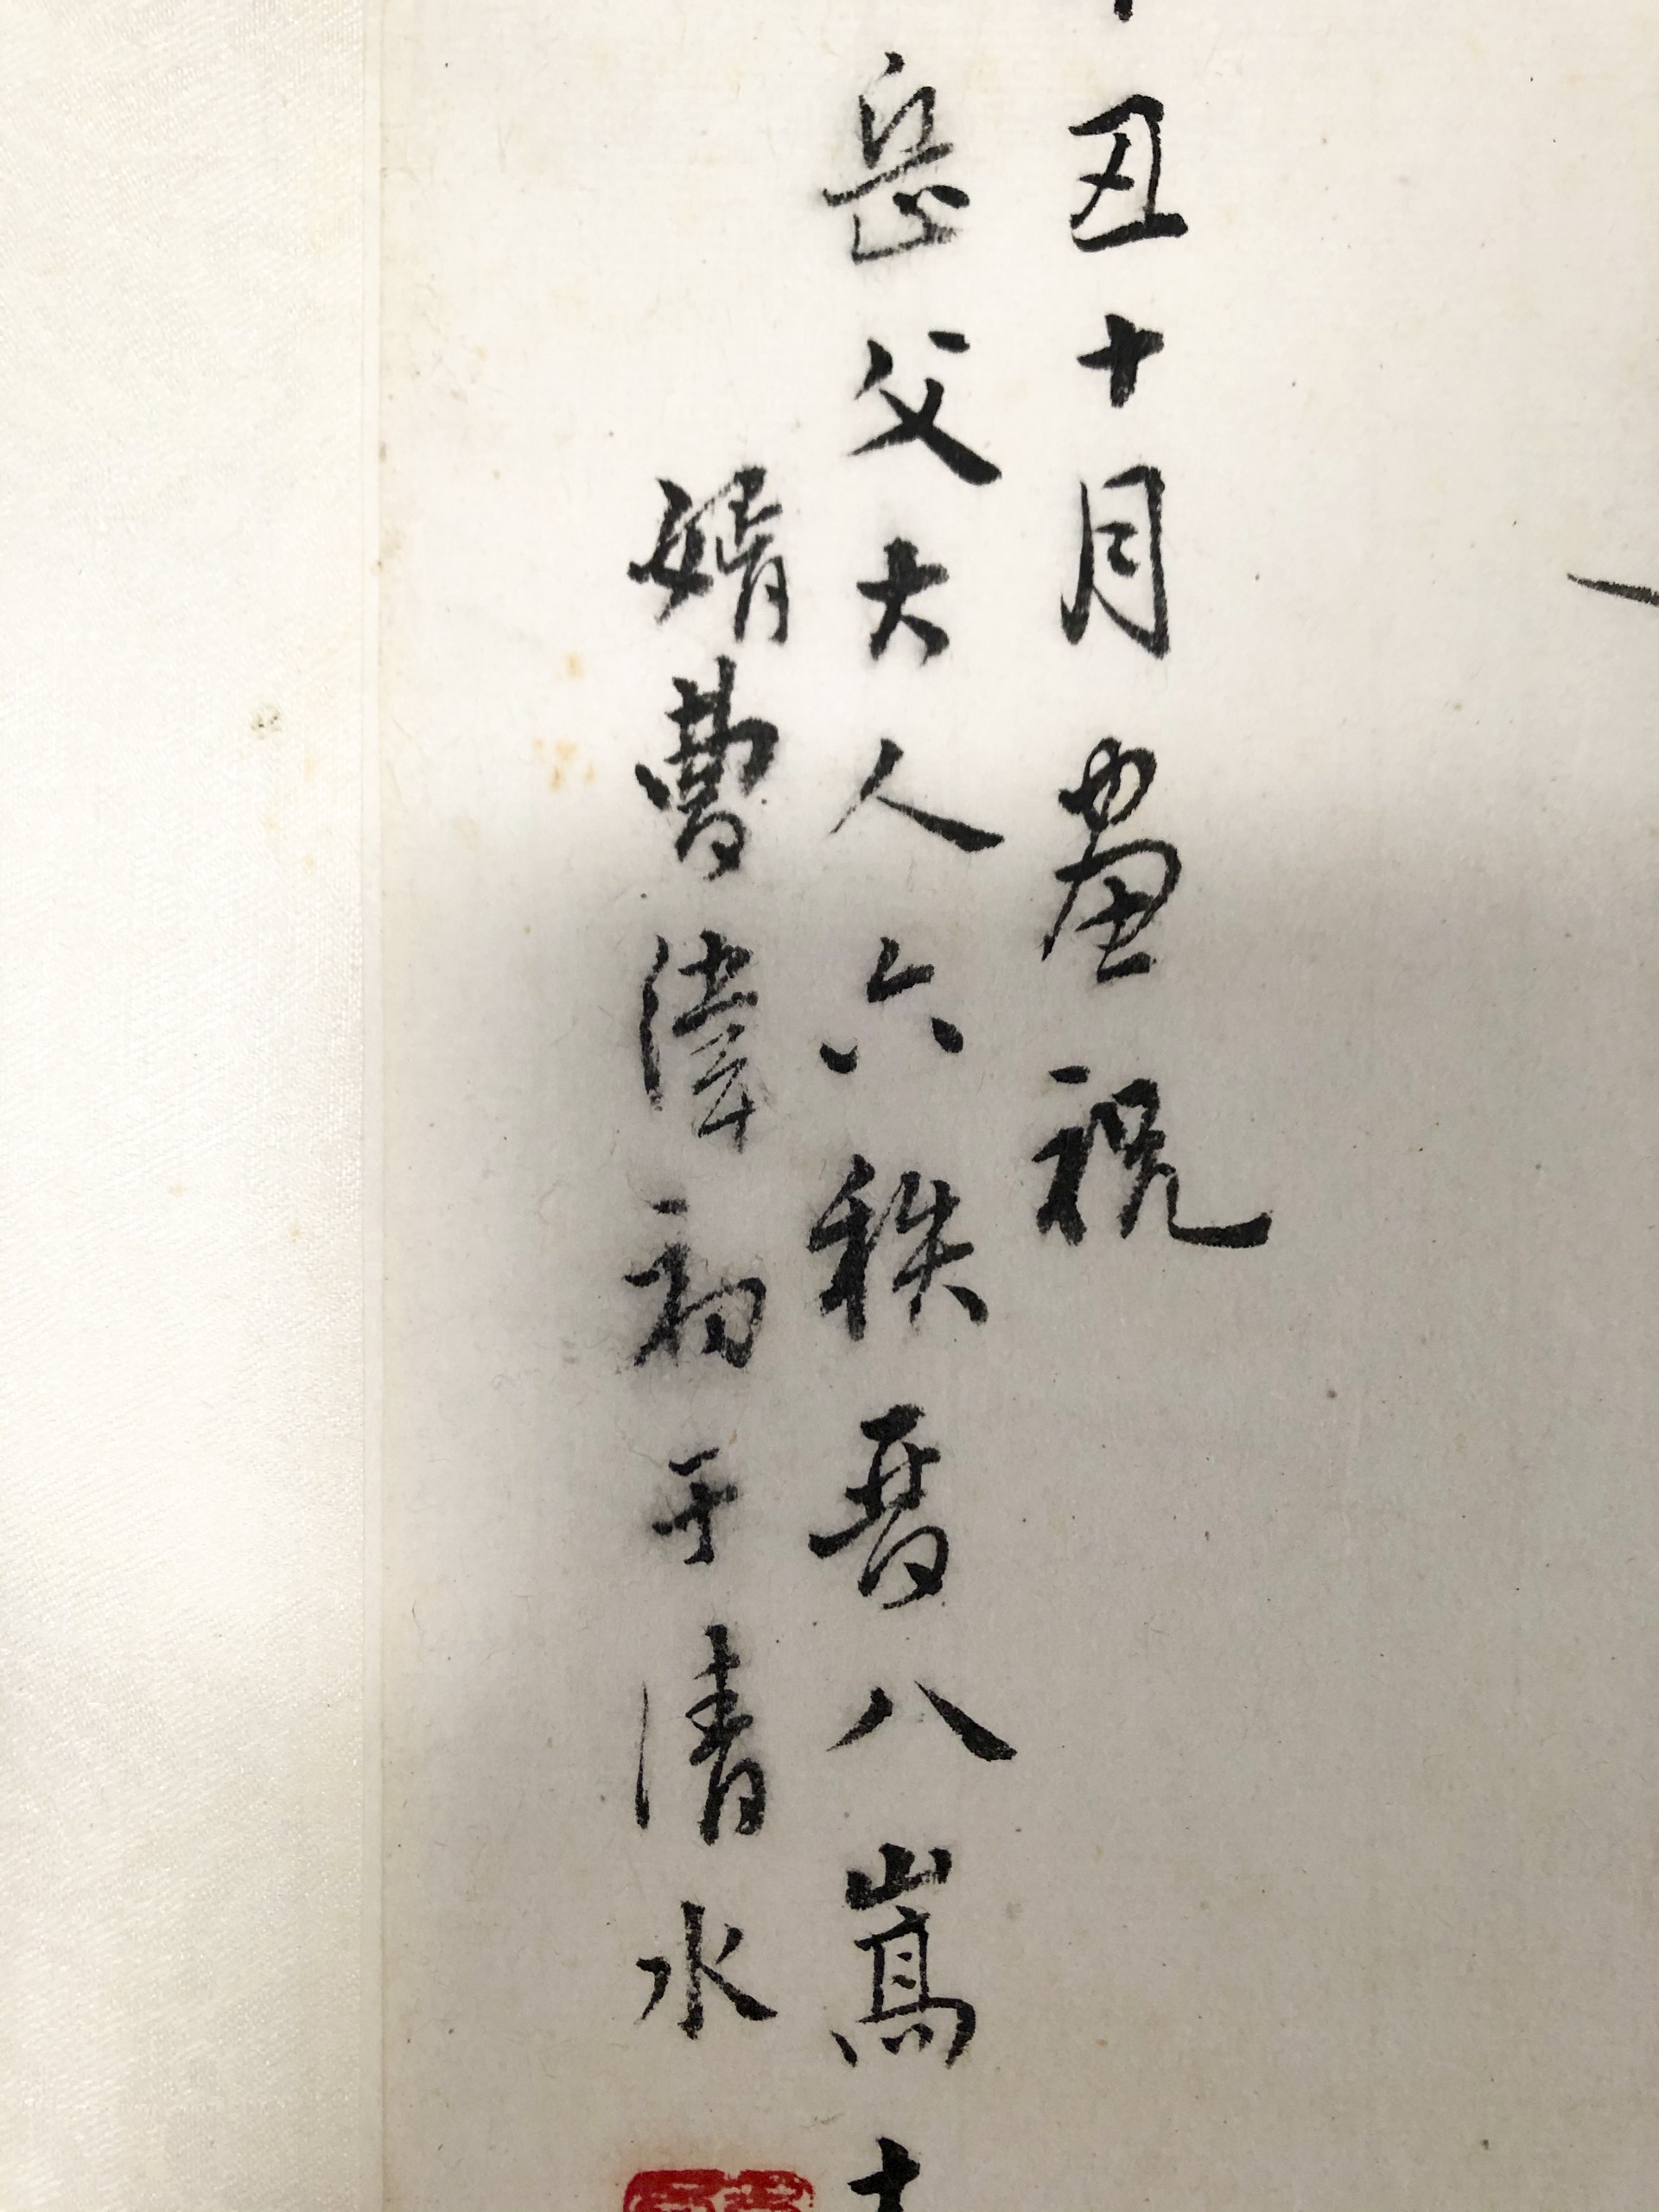 丑十月画祝
岳父大人六秩晋八嵩
婿曹緯初于清水